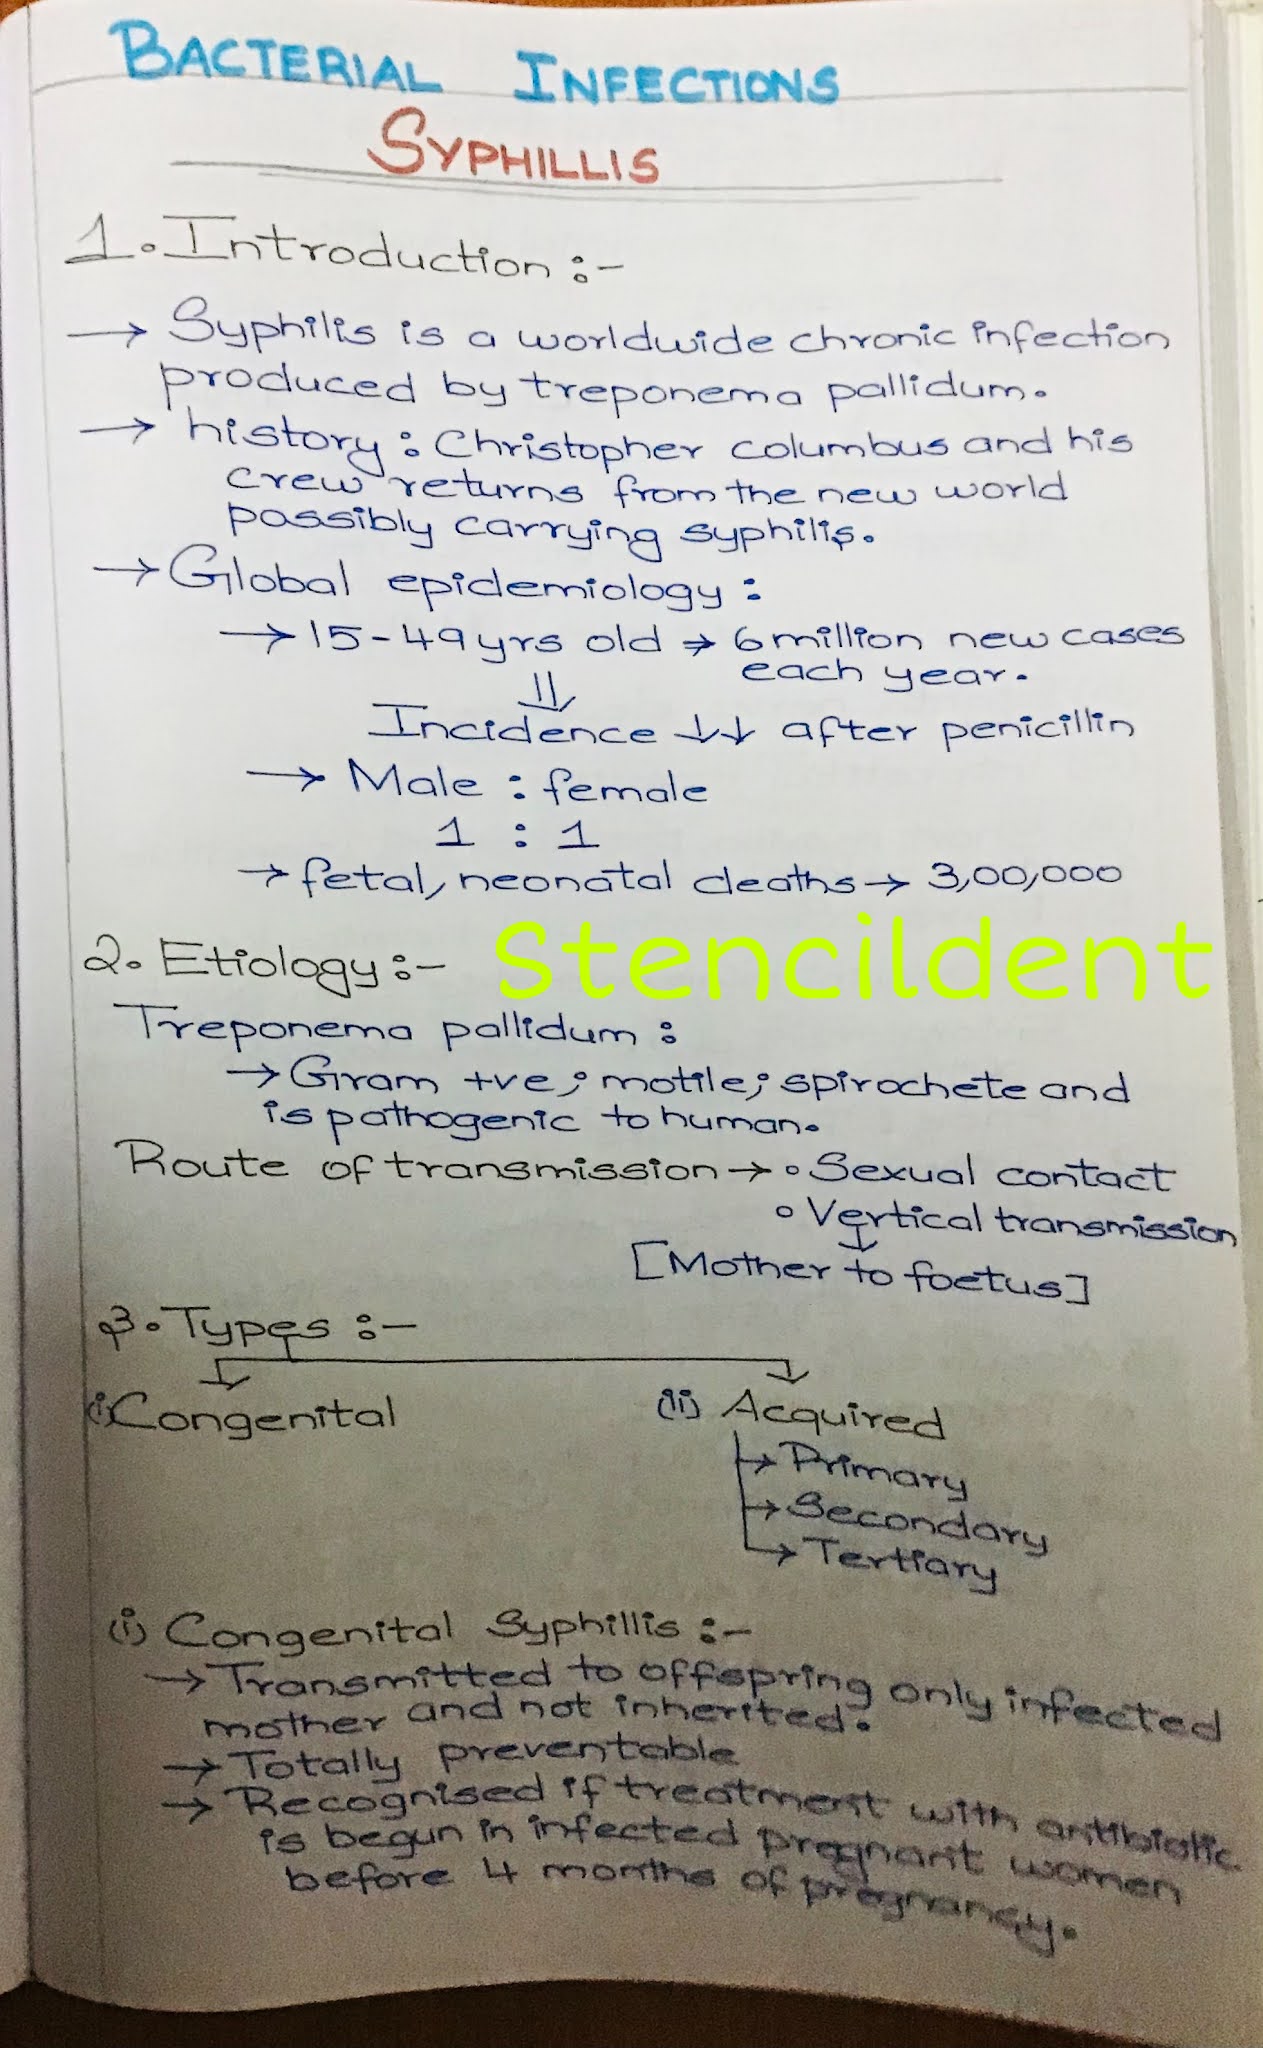 BACTERIAL INFECTIONS
SYPHILLIS
1. Introduction :-
→ Syphilis is a worldwide chronic infection
produced by treponema pallidum.
→ history : Christopher columbus and his
crew returns from the new world
possibly carrying syphilis.
→ Global epidemiology :
→ 15-49 yrs old → 6 million new cases
each year.
⇓
Incidence ↓↓ after penicillin
→ Male : female
1 : 1
→ fetal, neonatal deaths → 3,00,000
2. Etiology :-
Stencildent
Treponema pallidum :
→ Gram +ve ; motile ; spirochete and
is pathogenic to human.
Route of transmission → • Sexual contact
• Vertical transmission
↓
[Mother to foetus]
3. Types :-
(i) Congenital (ii) Acquired
→ Primary
→ Secondary
→ Tertiary
(i) Congenital Syphillis :-
→ Transmitted to offspring only infected
mother and not inherited.
→ Totally preventable
→ Recognised if treatment with antibiotic
is begun in infected pregnant women
before 4 months of pregnancy.